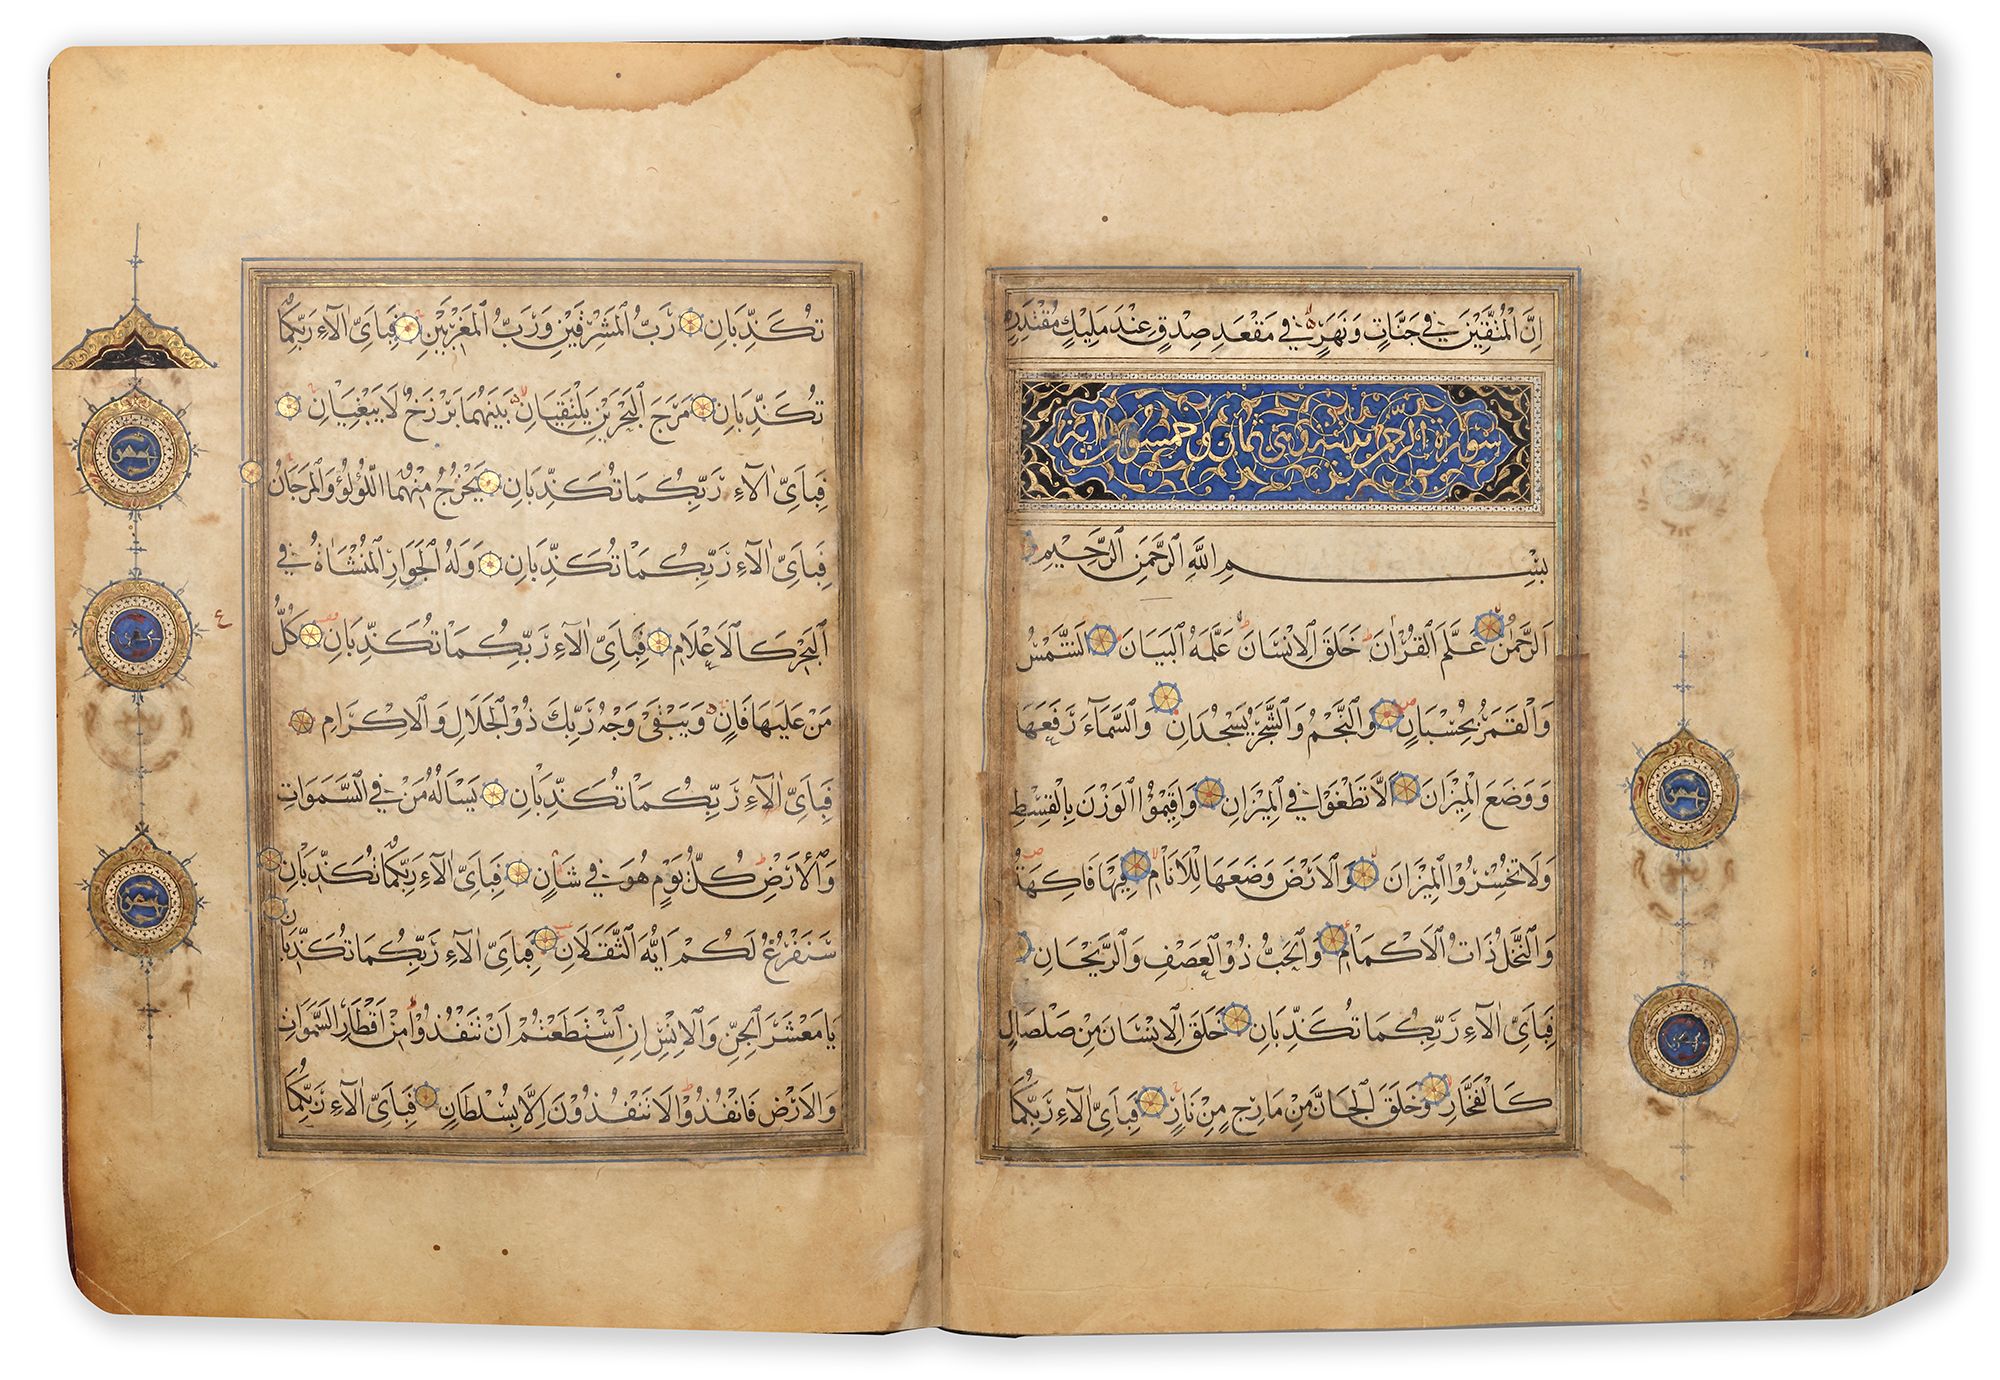 اِنَّ الْمُتَّقِينَ فِى جَنَّاتٍ وَنَهَرٍ فِى مَقْعَدِ صِدْقٍ عِنْدَ مَلِيكٍ مُقْتَدِرٍ
سورة الرحمن وهى ثمان وخمسون آية
بِسْمِ اللَّهِ الرَّحْمَنِ الرَّحِيمِ
اَلرَّحْمَنُ عَلَّمَ الْقُرْاٰنَ خَلَقَ الْاِنْسَانَ عَلَّمَهُ الْبَيَانَ اَلشَّمْسُ
وَالْقَمَرُ بِحُسْبَانٍ وَالنَّجْمُ وَالشَّجَرُ يَسْجُدَانِ وَالسَّمَآءَ رَفَعَهَا
وَوَضَعَ الْمِيزَانَ اَلَّا تَطْغَوْا فِى الْمِيزَانِ وَاَقِيمُوا الْوَزْنَ بِالْقِسْطِ
وَلَا تُخْسِرُوا الْمِيزَانَ وَالْاَرْضَ وَضَعَهَا لِلْاَنَامِ فِيهَا فَاكِهَةٌ
وَالنَّخْلُ ذَاتُ الْاَكْمَامِ وَالْحَبُّ ذُو الْعَصْفِ وَالرَّيْحَانِ
فَبِاَىِّ اٰلَآءِ رَبِّكُمَا تُكَذِّبَانِ خَلَقَ الْاِنْسَانَ مِنْ صَلْصَالٍ
كَالْفَخَّارِ وَخَلَقَ الْجَانَّ مِنْ مَارِجٍ مِنْ نَارٍ فَبِاَىِّ اٰلَآءِ رَبِّكُمَا
تُكَذِّبَانِ رَبُّ الْمَشْرِقَيْنِ وَرَبُّ الْمَغْرِبَيْنِ فَبِاَىِّ اٰلَآءِ رَبِّكُمَا
تُكَذِّبَانِ مَرَجَ الْبَحْرَيْنِ يَلْتَقِيَانِ بَيْنَهُمَا بَرْزَخٌ لَا يَبْغِيَانِ
فَبِاَىِّ اٰلَآءِ رَبِّكُمَا تُكَذِّبَانِ يَخْرُجُ مِنْهُمَا اللُّؤْلُؤُ وَالْمَرْجَانُ
فَبِاَىِّ اٰلَآءِ رَبِّكُمَا تُكَذِّبَانِ وَلَهُ الْجَوَارِ الْمُنْشَاٰةُ فِى
الْبَحْرِ كَالْاَعْلَامِ فَبِاَىِّ اٰلَآءِ رَبِّكُمَا تُكَذِّبَانِ كُلُّ
مَنْ عَلَيْهَا فَانٍ وَيَبْقَى وَجْهُ رَبِّكَ ذُو الْجَلَالِ وَالْاِكْرَامِ
فَبِاَىِّ اٰلَآءِ رَبِّكُمَا تُكَذِّبَانِ يَسْاَلُهُ مَنْ فِى السَّمَوَاتِ
وَالْاَرْضِ كُلَّ يَوْمٍ هُوَ فِى شَاْنٍ فَبِاَىِّ اٰلَآءِ رَبِّكُمَا تُكَذِّبَانِ
سَنَفْرُغُ لَكُمْ اَيُّهَ الثَّقَلَانِ فَبِاَىِّ اٰلَآءِ رَبِّكُمَا تُكَذِّبَانِ
يَا مَعْشَرَ الْجِنِّ وَالْاِنْسِ اِنِ اسْتَطَعْتُمْ اَنْ تَنْفُذُوا مِنْ اَقْطَارِ السَّمَوَاتِ
وَالْاَرْضِ فَانْفُذُوا لَا تَنْفُذُونَ اِلَّا بِسُلْطَانٍ فَبِاَىِّ اٰلَآءِ رَبِّكُمَا